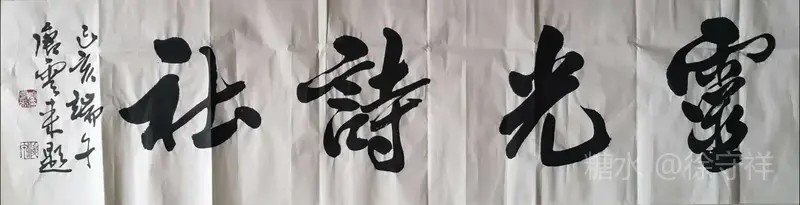 靈光詩社
己亥端午
唐雲来題
糖水 @徐守祥